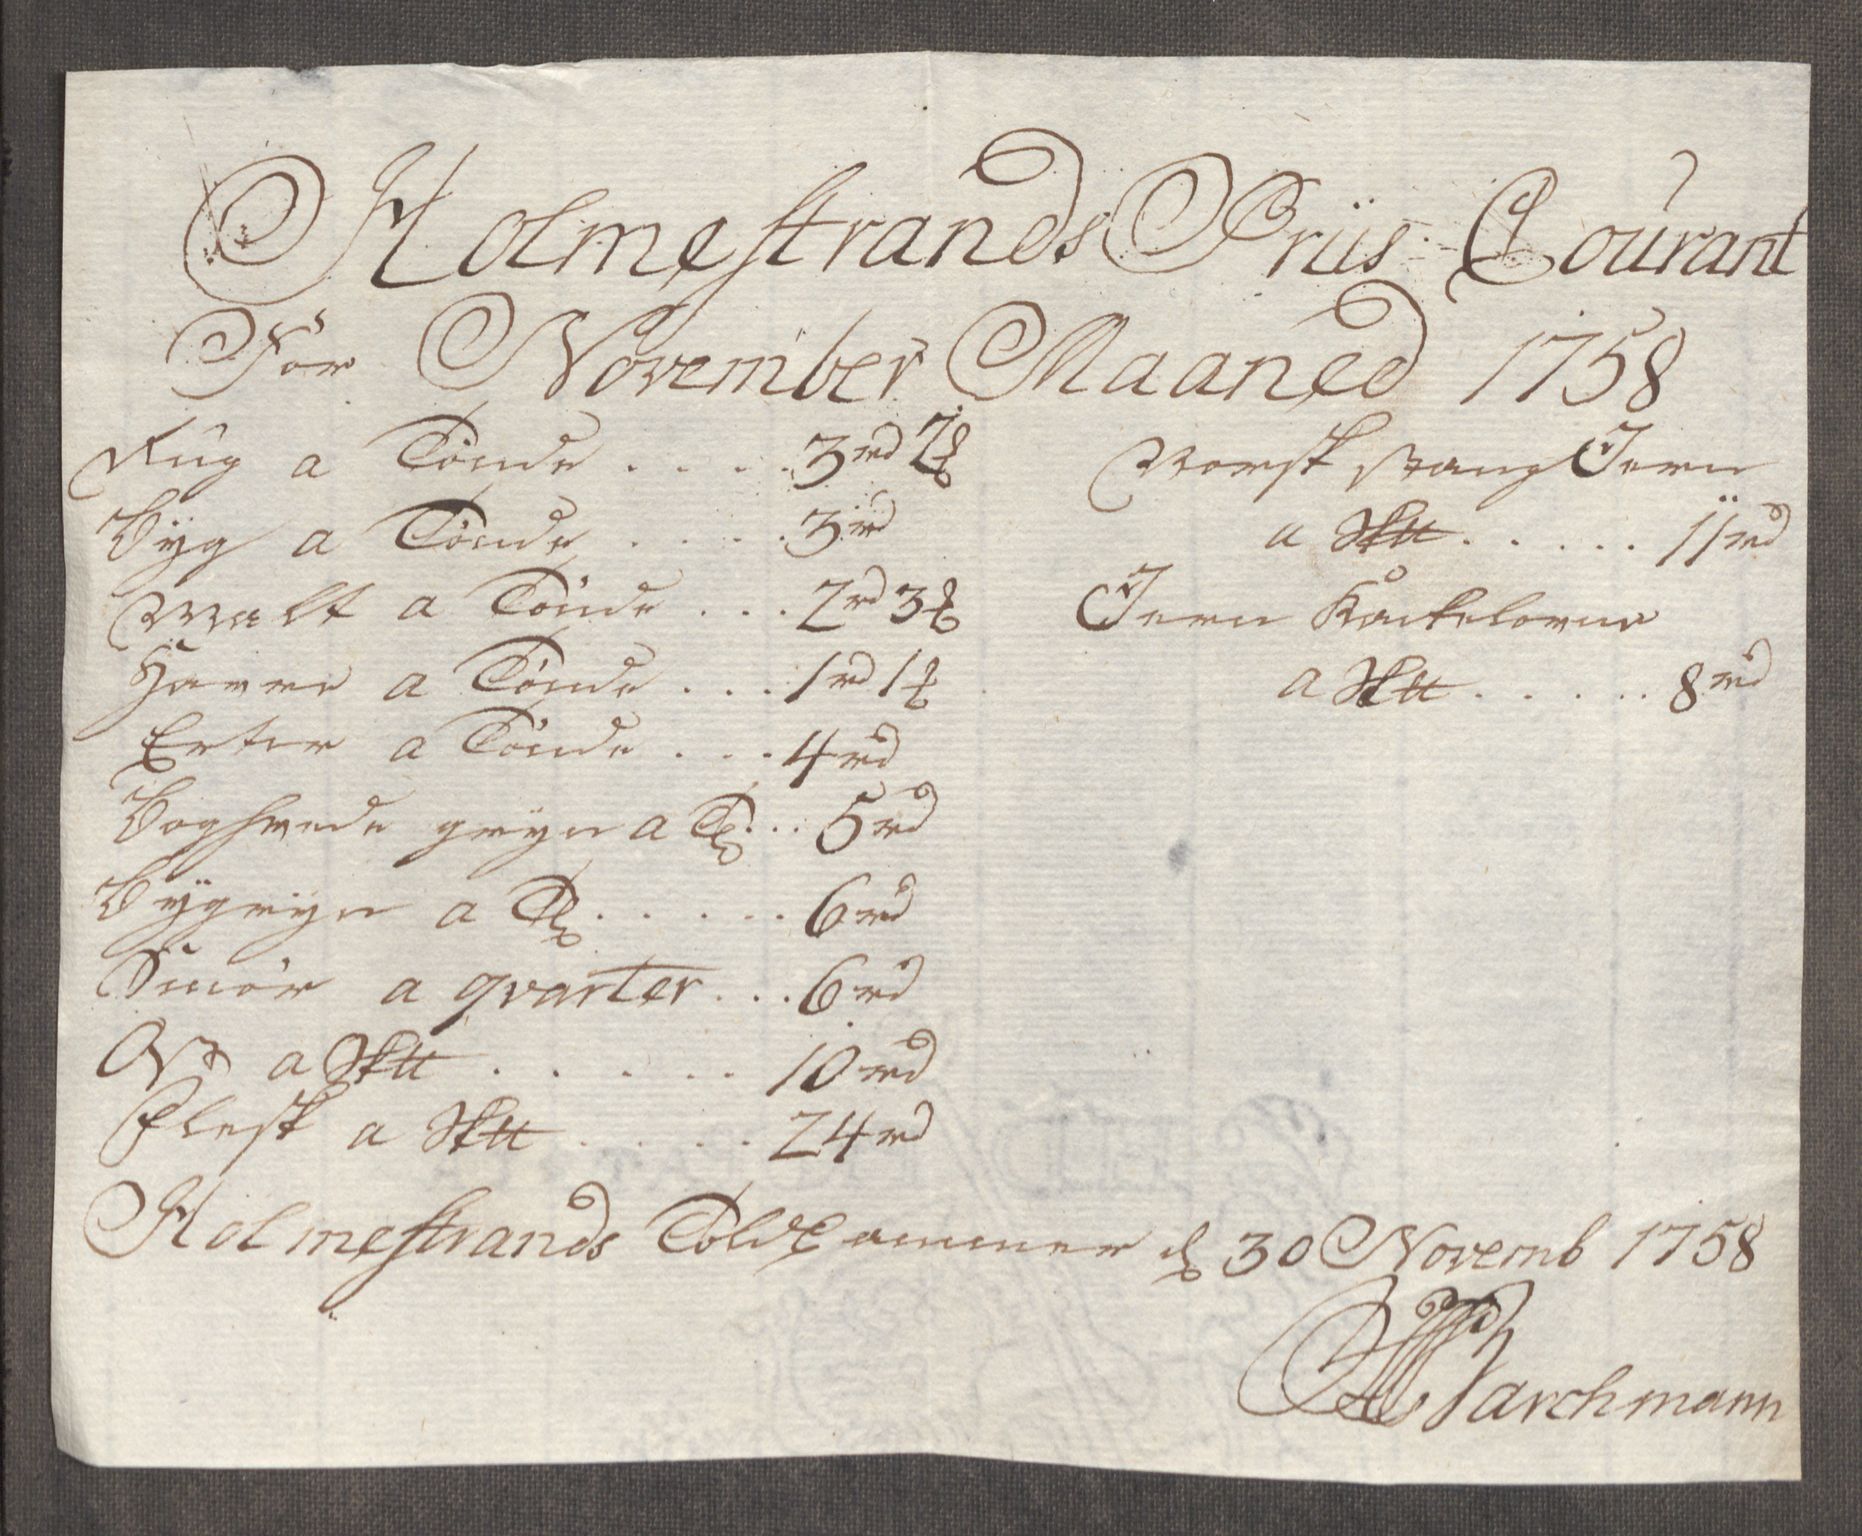 Holmestrands Priis Courant
For November Maaned 1758
Rug a Tönde . . . . . 3 rd 2 ꝑ
Byg a Tönde . . . . . 3 rd
Malt a Tönde . . . 2 rd 3 ꝑ
Havre a Tönde . . . 1 rd 1 ꝑ
Erter a Tönde . . . 4 rd
Boghvede gryn a T . . . 5 rd
Byggryn a T . . . . . 6 rd
Smör a qvarter . . . 6 rd
Ost a Sk℔ . . . . . . 10 rd
Flesk a Sk℔ . . . . . 24 rd
Norsk Stang Jern
a Sk℔ . . . . . 11 rd
Jern Kackelovne
a Sk℔ . . . . . 8 rd
Holmestrands Told Cammer d 30 Novemb 1758